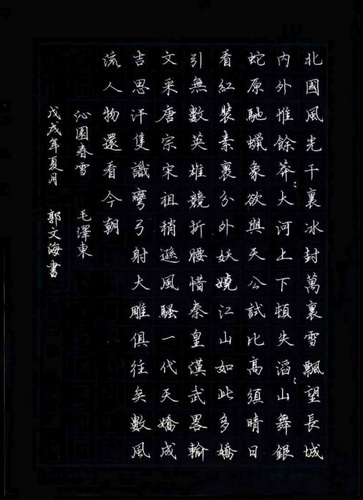 北國風光千裏冰封萬裏雪飄望長城
內外惟餘莽〻大河上下頓失滔〻山舞銀
蛇原馳蠟象欲與天公試比高須晴日
看紅裝素裹分外妖嬈江山如此多嬌
引無數英雄競折腰惜秦皇漢武畧輸
文采唐宗宋祖稍遜風騷一代天嬌成
吉思汗隻識彎弓射大雕俱往矣數風
流人物還看今朝
沁園春雪 毛澤東
戊戌年夏月 郭文海書